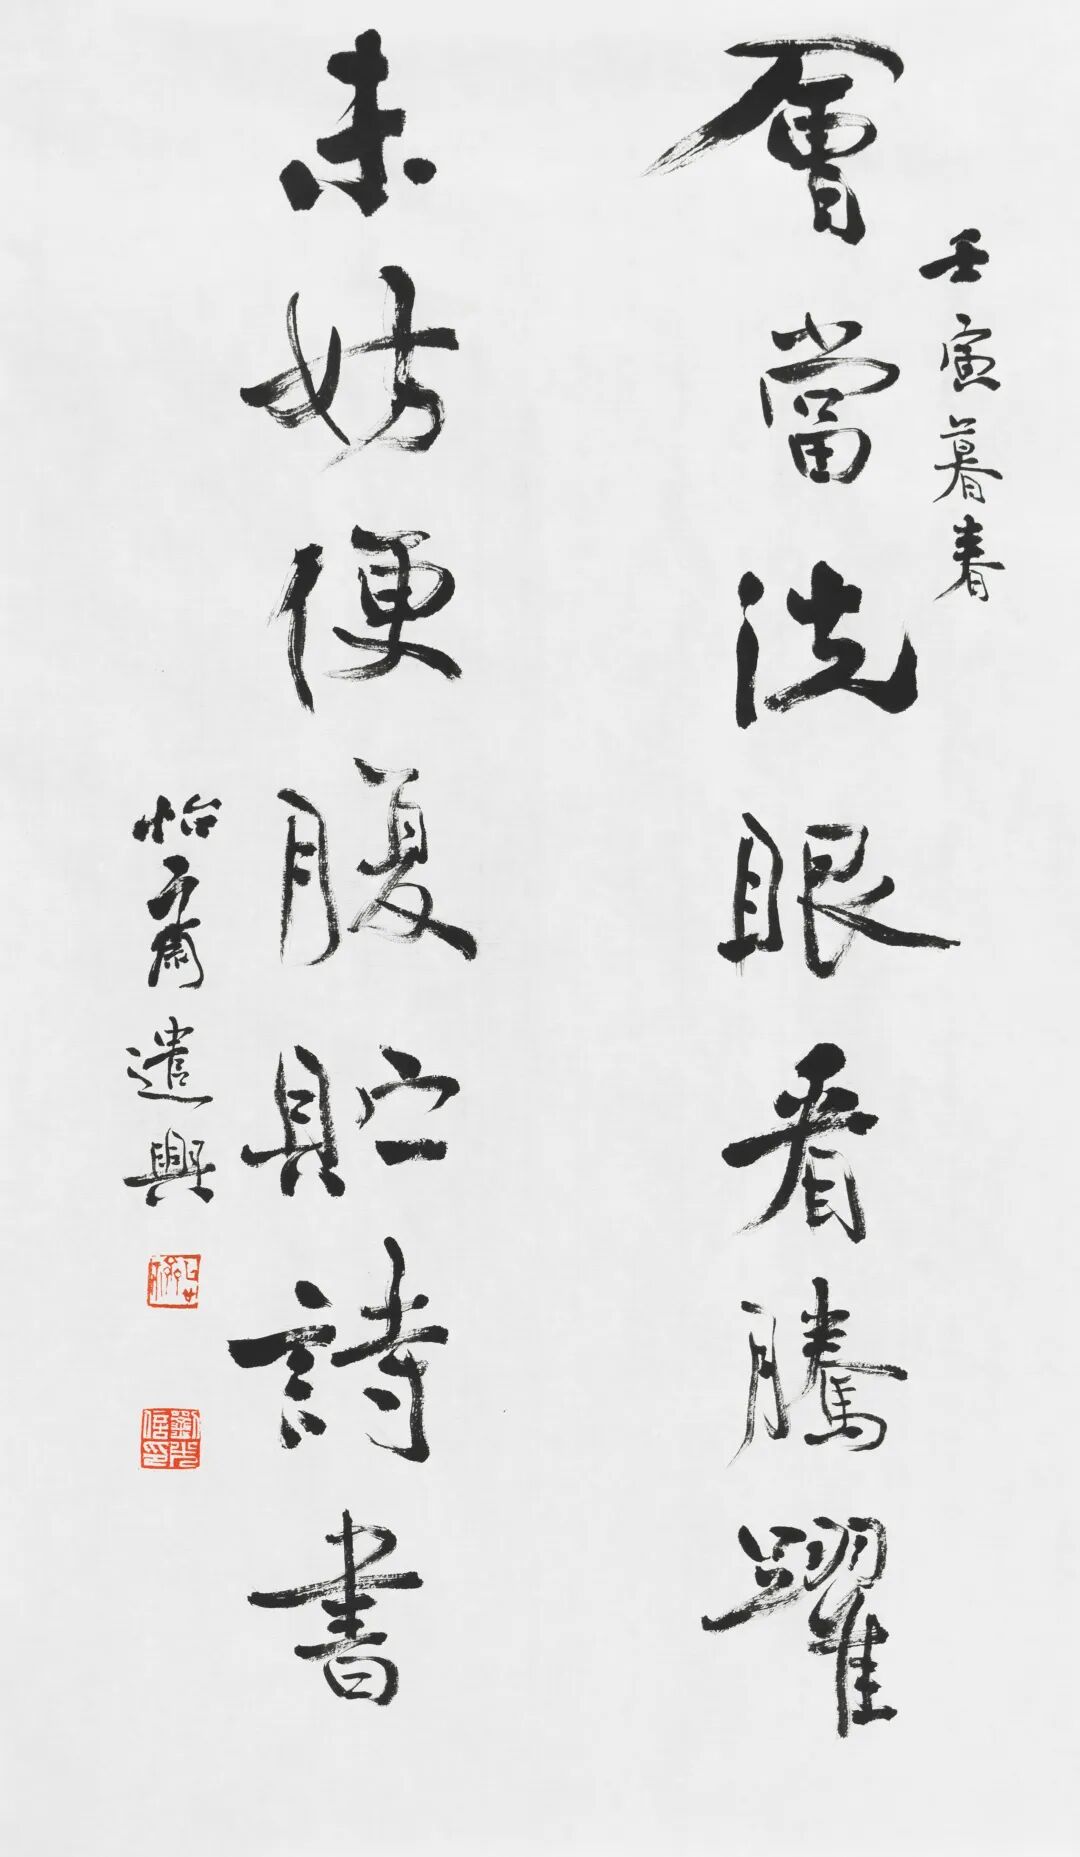 壬寅暮春
會當洗眼看騰躍
未妨便腹貯詩書
怡齋遣興